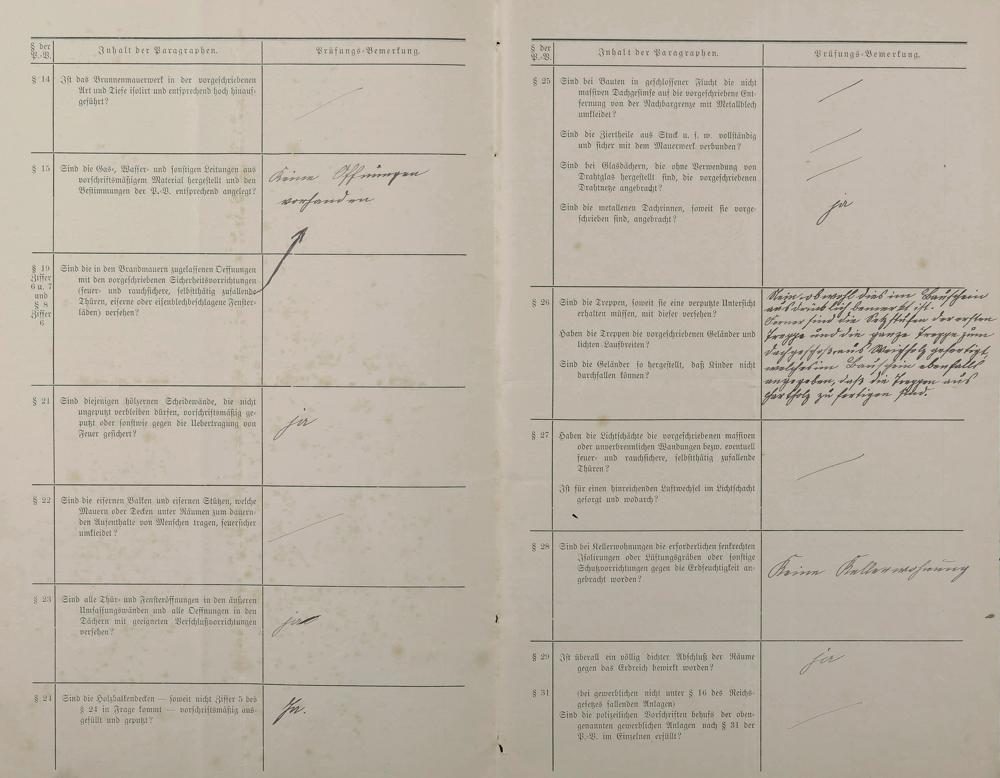 § der
P.-V.
Inhalt der Paragraphen.
Prüfungs-Bemerkung.
§ 14
Ist das Brunnenmauerwerk in der vorgeschriebenen
Art und Tiefe isolirt und entsprechend hoch hinauf-
geführt?
§ 15
Sind die Gas-, Wasser- und sonstigen Leitungen aus
vorschriftsmäßigem Material hergestellt und den
Bestimmungen der P.-V. entsprechend angelegt?
Keine Öffnungen
vorhanden
§ 19
Ziffer
6 u. 7
und
§ 8
Ziffer
6
Sind die in den Brandmauern zugelassenen Oeffnungen
mit den vorgeschriebenen Sicherheitsvorrichtungen
(feuer- und rauchsichere, selbstthätig zufallende
Thüren, eiserne oder eisenblechbeschlagene Fenster-
läden) versehen?
§ 21
Sind diejenigen hölzernen Scheidewände, die nicht
ungeputzt verbleiben dürfen, vorschriftsmäßig ge-
putzt oder sonstwie gegen die Uebertragung von
Feuer gesichert?
ja
§ 22
Sind die eisernen Balken und eisernen Stützen, welche
Mauern oder Decken unter Räumen zum dauern-
den Aufenthalte von Menschen tragen, feuersicher
umkleidet?
§ 23
Sind alle Thür- und Fensteröffnungen in den äußeren
Umfassungswänden und alle Oeffnungen in den
Dächern mit geeigneten Verschlußvorrichtungen
versehen?
ja
§ 24
Sind die Holzbalkendecken — soweit nicht Ziffer 5 des
§ 24 in Frage kommt — vorschriftsmäßig aus-
gefüllt und geputzt?
Ja.
§ der
P.-V.
Inhalt der Paragraphen.
Prüfungs-Bemerkung.
§ 25
Sind bei Bauten in geschlossener Flucht die nicht
massiven Dachgesimse auf die vorgeschriebene Ent-
fernung von der Nachbargrenze mit Metallblech
umkleidet?
Sind die Ziertheile aus Stuck u. s. w. vollständig
und sicher mit dem Mauerwerk verbunden?
Sind bei Glasdächern, die ohne Verwendung von
Drahtglas hergestellt sind, die vorgeschriebenen
Drahtnetze angebracht?
Sind die metallenen Dachrinnen, soweit sie vorge-
schrieben sind, angebracht?
ja
§ 26
Sind die Treppen, soweit sie eine verputzte Untersicht
erhalten müssen, mit dieser versehen?
Haben die Treppen die vorgeschriebenen Geländer und
lichten Laufbreiten?
Sind die Geländer so hergestellt, daß Kinder nicht
durchfallen können?
Nein, obwohl dies im Bauschein
ausdrücklich bemerkt ist.
Ferner sind die Setzstufen der ersten
Treppe und die ganze Treppe zum
Dachgeschoß aus Weichholz gefertigt,
welches im Bauschein ebenfalls
angegeben, daß die Treppen aus
Hartholz zu fertigen sind.
§ 27
Haben die Lichtschächte die vorgeschriebenen massiven
oder unverbrennlichen Wandungen bezw. eventuell
feuer- und rauchsichere, selbstthätig zufallende
Thüren?
Ist für einen hinreichenden Luftwechsel im Lichtschacht
gesorgt und wodurch?
§ 28
Sind bei Kellerwohnungen die erforderlichen senkrechten
Isolirungen oder Lüftungsgräben oder sonstige
Schutzvorrichtungen gegen die Erdfeuchtigkeit an-
gebracht worden?
Keine Kellerwohnung
§ 29
Ist überall ein völlig dichter Abschluß der Räume
gegen das Erdreich bewirkt worden?
ja
§ 31
(bei gewerblichen nicht unter § 16 des Reichs-
gesetzes fallenden Anlagen)
Sind die polizeilichen Vorschriften behufs der oben-
genannten gewerblichen Anlagen nach § 31 der
P.-V. im Einzelnen erfüllt?